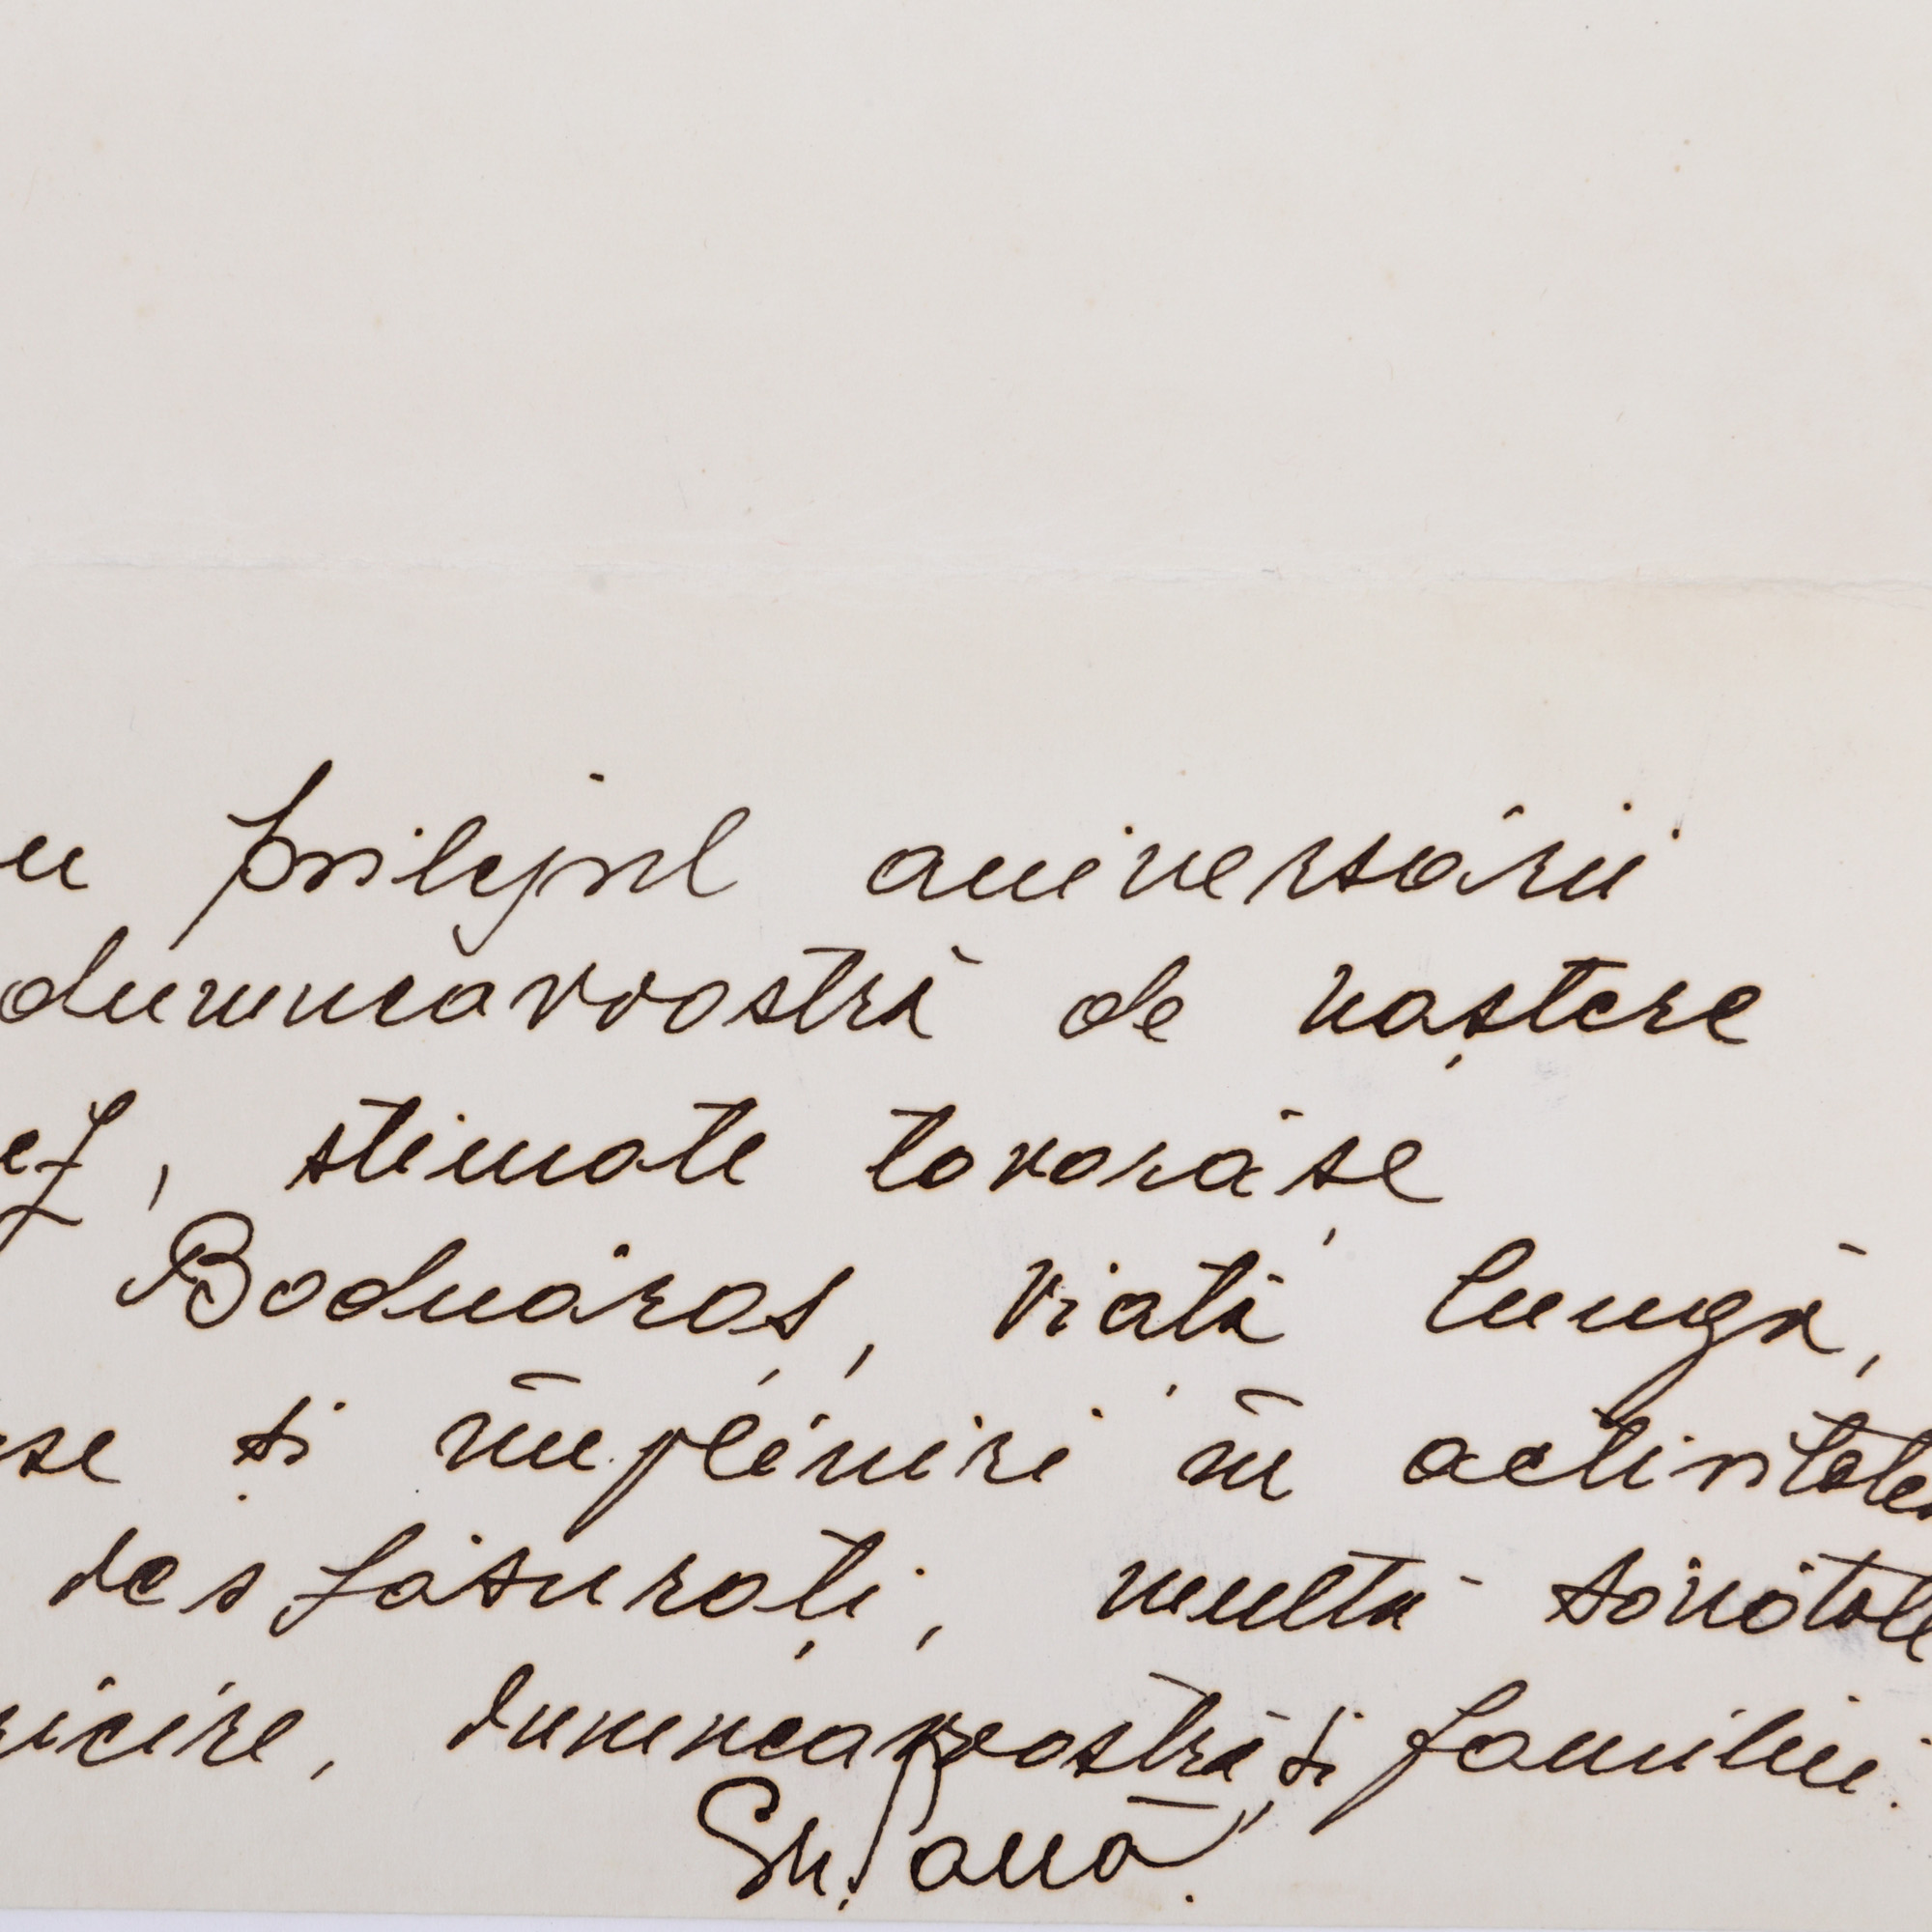 u prilejul aniversării
dumneavoastră de naștere
ez, stimate tovarășe
Bodnăraș, viață lungă,
se și împliniri în activitatea
desfășurați, multă sănătate
ricire, dumneavoastră și familiei.
Gh. Pană.